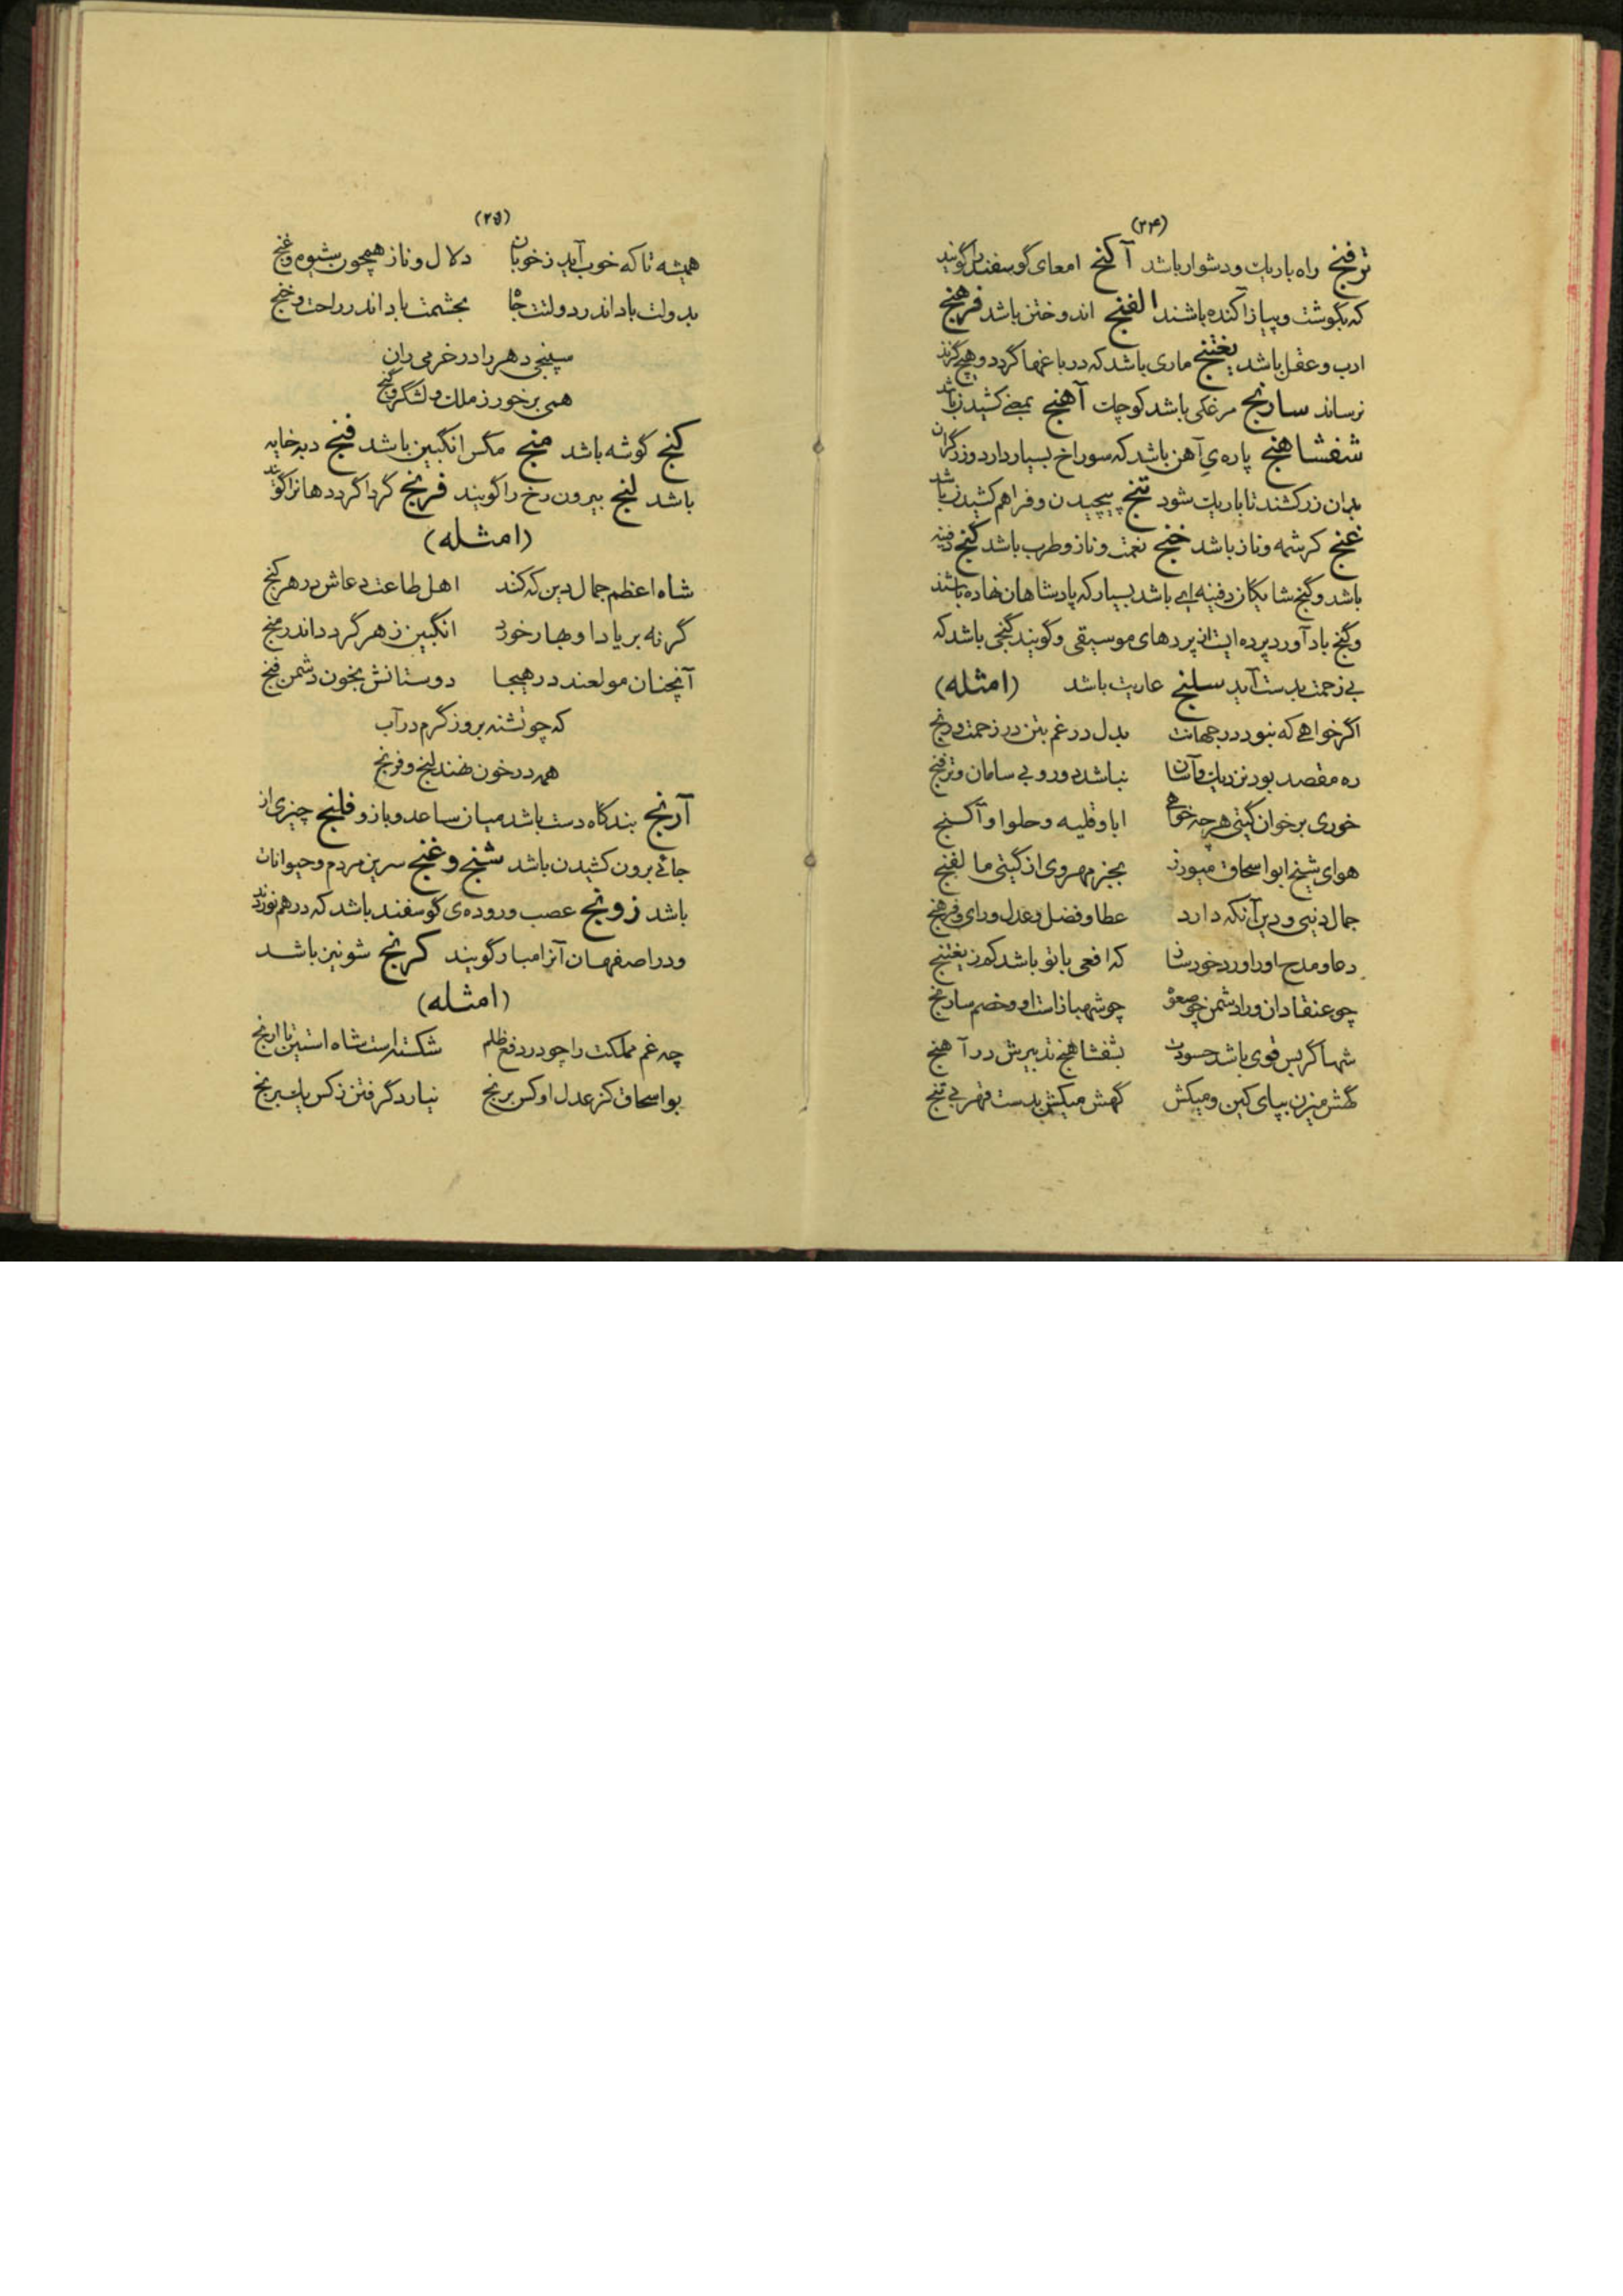 (۲۴)
ترفنج راه باریک و دشوار باشد آکنج امعای گوسفند را گویند
که بگوشت و پیاز آکنده باشند الفنج اندوختن باشد فرهنج
ادب و عقل باشد یغتنج ماری باشد که در باغها گردد و هیچ گزند
نرساند سارنج مرغکی باشد کوچک آهنج بمعنی کشیدن باشد
شفشاهنج پاره‌ی آهن باشد که سوراخ بسیار دارد و زرگران
بدان زر کشند تا باریک شود تنج پیچیدن و فراهم کشیدن باشد
غنج کرشمه و ناز باشد خنج نعمت و ناز و طرب باشد گنج دفینه
باشد و گنج شایگان دفینه ای باشد بسیار که پادشاهان نهاده باشند
و گنج باد آورد پرده ایست از پردهای موسیقی و گویند گنجی باشد که
بی زحمت بدست آید سلنج عاریت باشد (امثله)
اگر خواهی که نبود در جهانت بدل در غم بتن در زحمت و رنج
ره مقصد بود نزدیک و آسان نباشد دور و بی سامان و ترفنج
خوری بر خوان گیتی هر چه خواهی ابا و قلیه و حلوا و آکنج
هوای شیخ ابو اسحاق میورز بجز مهر وی از گیتی ما لفنج
جمال دنیی و دین آنکه دارد عطا و فضل و عدل و رای و فرهنج
دعا و مدح او را ورد خود ساز که افعی با تو باشد کم ز یغتنج
چو عنقا دان ورا دشمن چو صعوه چو شهباز است او و خصم سارنج
شها گر بس قوی باشد حسودت بشفشاهنج تدبیرش در آهنج
گهش میزن بپای کین و میکش گهش میکش بدست قهر بی تنج
(۲۵)
همیشه تا که خوب آید ز خوبان دلال و ناز همچون شیوه و غنج
بدولت باد اندر دولتت جاه بحشمت باد اندر راحت و خنج
سپنجی دهر را در خرمی ران
همی بر خور ز ملک و لشگر و گنج
کنج گوشه باشد منج مگس انگبین باشد فنج دبه خایه
باشد لنج بیرون رخ را گویند فرنج گرداگرد دهانرا گویند
(امثله)
شاه اعظم جمال دین که کند اهل طاعت دعاش در هر کنج
گر نه بر یاد او بهار خورد انگبین زهر گردد اندر منج
آنچنان مولعند در هیجا دوستانش بخون دشمن فنج
که چو تشنه بروز گرم در آب
همه در خون نهند لنج و فرنج
آرنج بندگاه دست باشد میان ساعد و بازو فلنج چیزی از
جائی برون کشیدن باشد شنج و غنج سرین مردم و حیوانات
باشد زونج عصب و روده‌ی گوسفند باشد که در هم نوردند
و در اصفهان آنرا مبار گویند کرنج شونیز باشد
(امثله)
چه غم مملکت را چو در دفع ظلم شکسته است شاه استین تا ارنج
بو اسحاق کز عدل او کس برنج نیارد گرفتن ز کس یک برنج